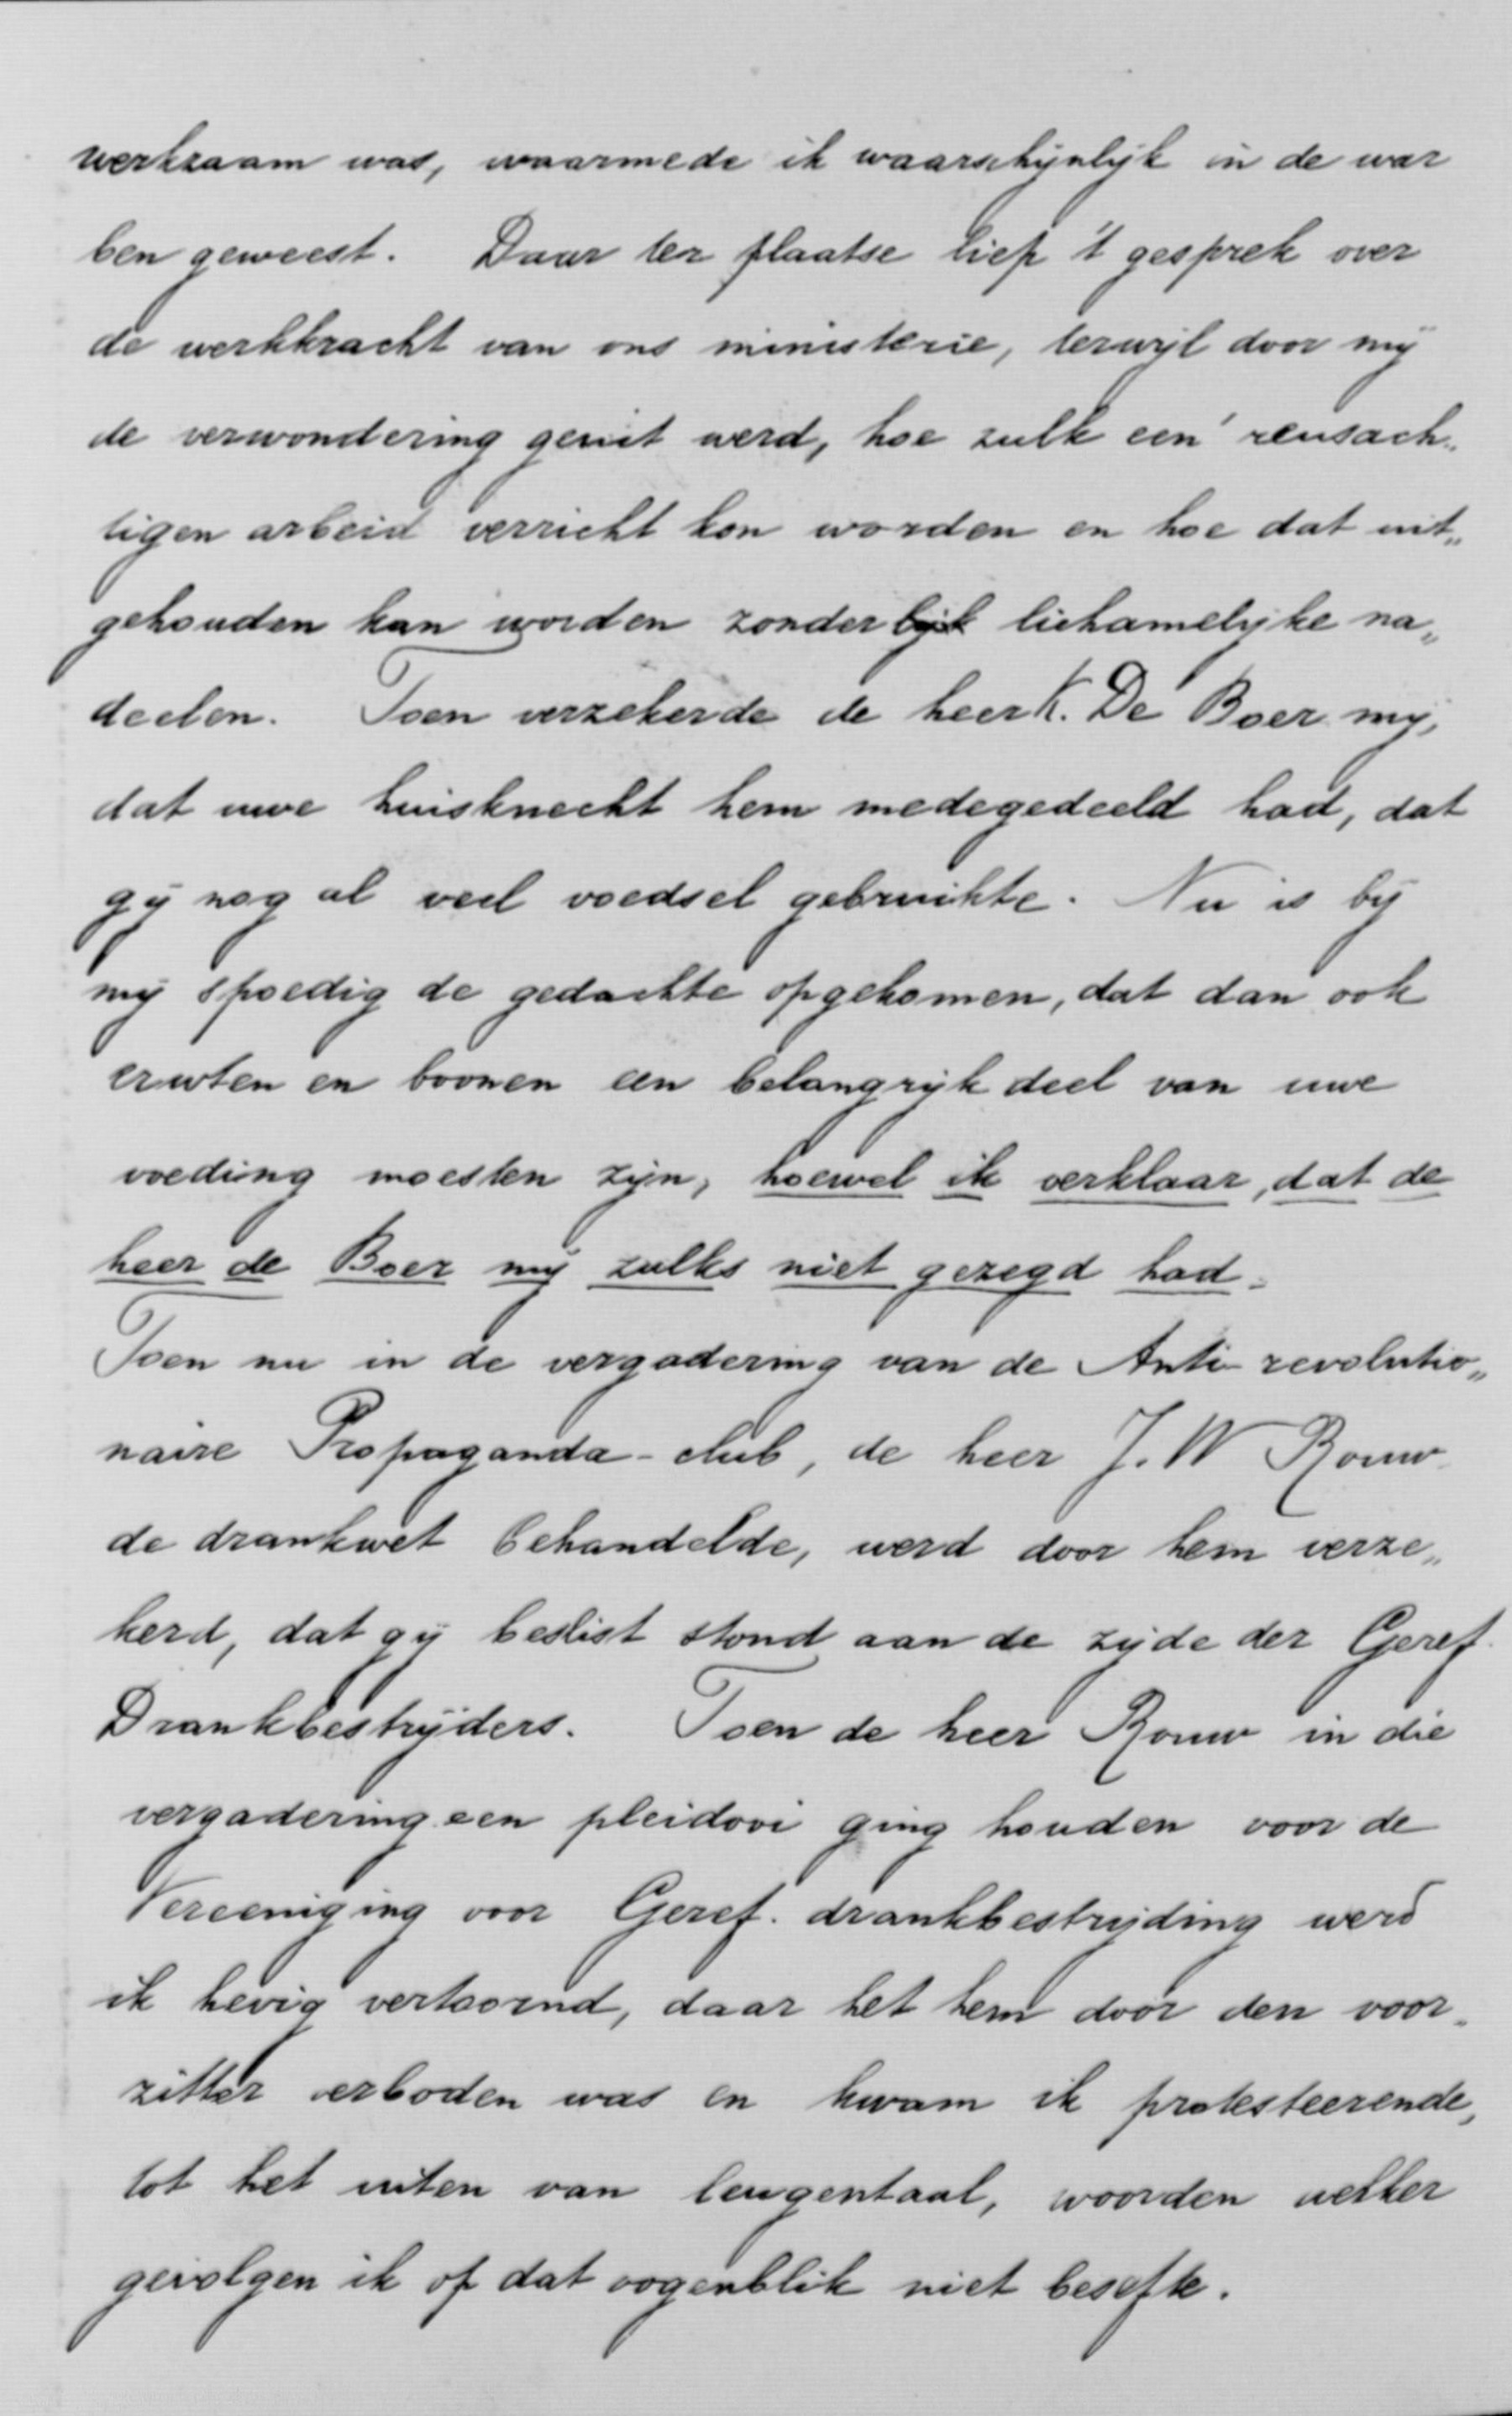 werkzaam was, waarmede ik waarschijnlijk in de war
ben geweest. Daar ter plaatse liep 't gesprek over
de werkkracht van ons ministerie, terwijl door mij
de verwondering geuit werd, hoe zulk een' reusach„
tigen arbeid verricht kon worden en hoe dat uit„
gehouden kan worden zonder lichamelijke na„
deelen. Toen verzekerde de heer K. De Boer mij,
dat uwe huisknecht hem medegedeeld had, dat
gij nog al veel voedsel gebruikte. Nu is bij
mij spoedig de gedachte opgekomen, dat dan ook
erwten en boonen een belangrijk deel van uwe
voeding moesten zijn, hoewel ik verklaar, dat de
heer de Boer mij zulks niet gezegd had.
Toen nu in de vergadering van de Anti-revolutio„
naire Propaganda-club, de heer J. W Rouw
de drankwet behandelde, werd door hem verze„
kerd, dat gij beslist stond aan de zijde der Geref.
Drankbestrijders. Toen de heer Rouw in die
vergadering een pleidooi ging houden voor de
Vereeniging voor Geref. drankbestrijding werd
ik hevig vertoornd, daar het hem door den voor„
zitter verboden was en kwam ik protesteerende,
tot het uiten van leugentaal, woorden welker
gevolgen ik op dat oogenblik niet besefte.